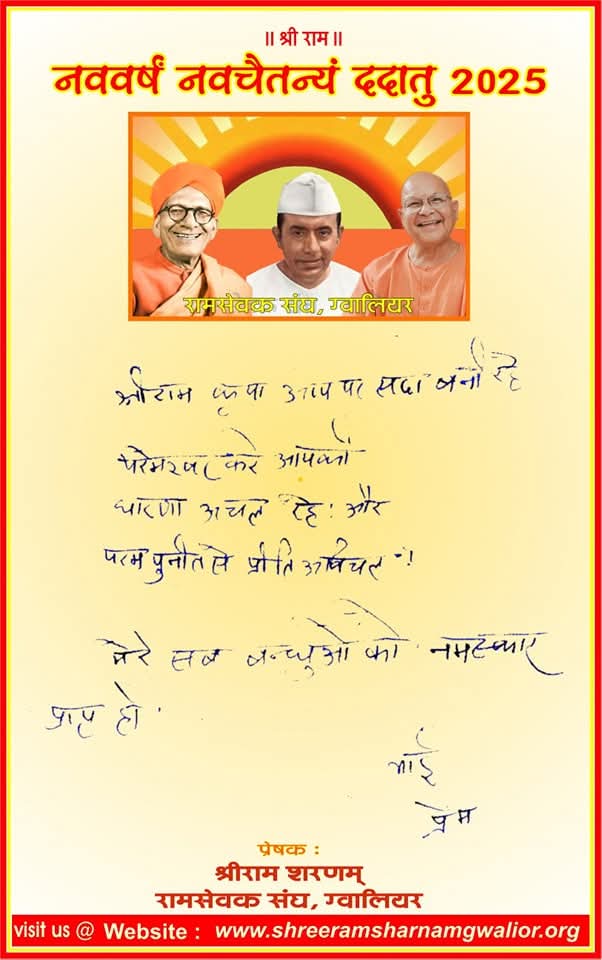 ॥ श्री राम ॥
नववर्षं नवचैतन्यं ददातु 2025
रामसेवक संघ, ग्वालियर
श्रीराम कृपा आप पर सदा बनी रहे
परमेश्वर करे आपकी
धारणा अचल रहे। और
परम पुनीत से प्रीति अविचल -!
मेरे सब बन्धुओं को नमस्कार
प्राप्त हो।
भाई
प्रेम
प्रेषक :
श्रीराम शरणम्
रामसेवक संघ, ग्वालियर
visit us @ Website : www.shreeramsharnamgwalior.org